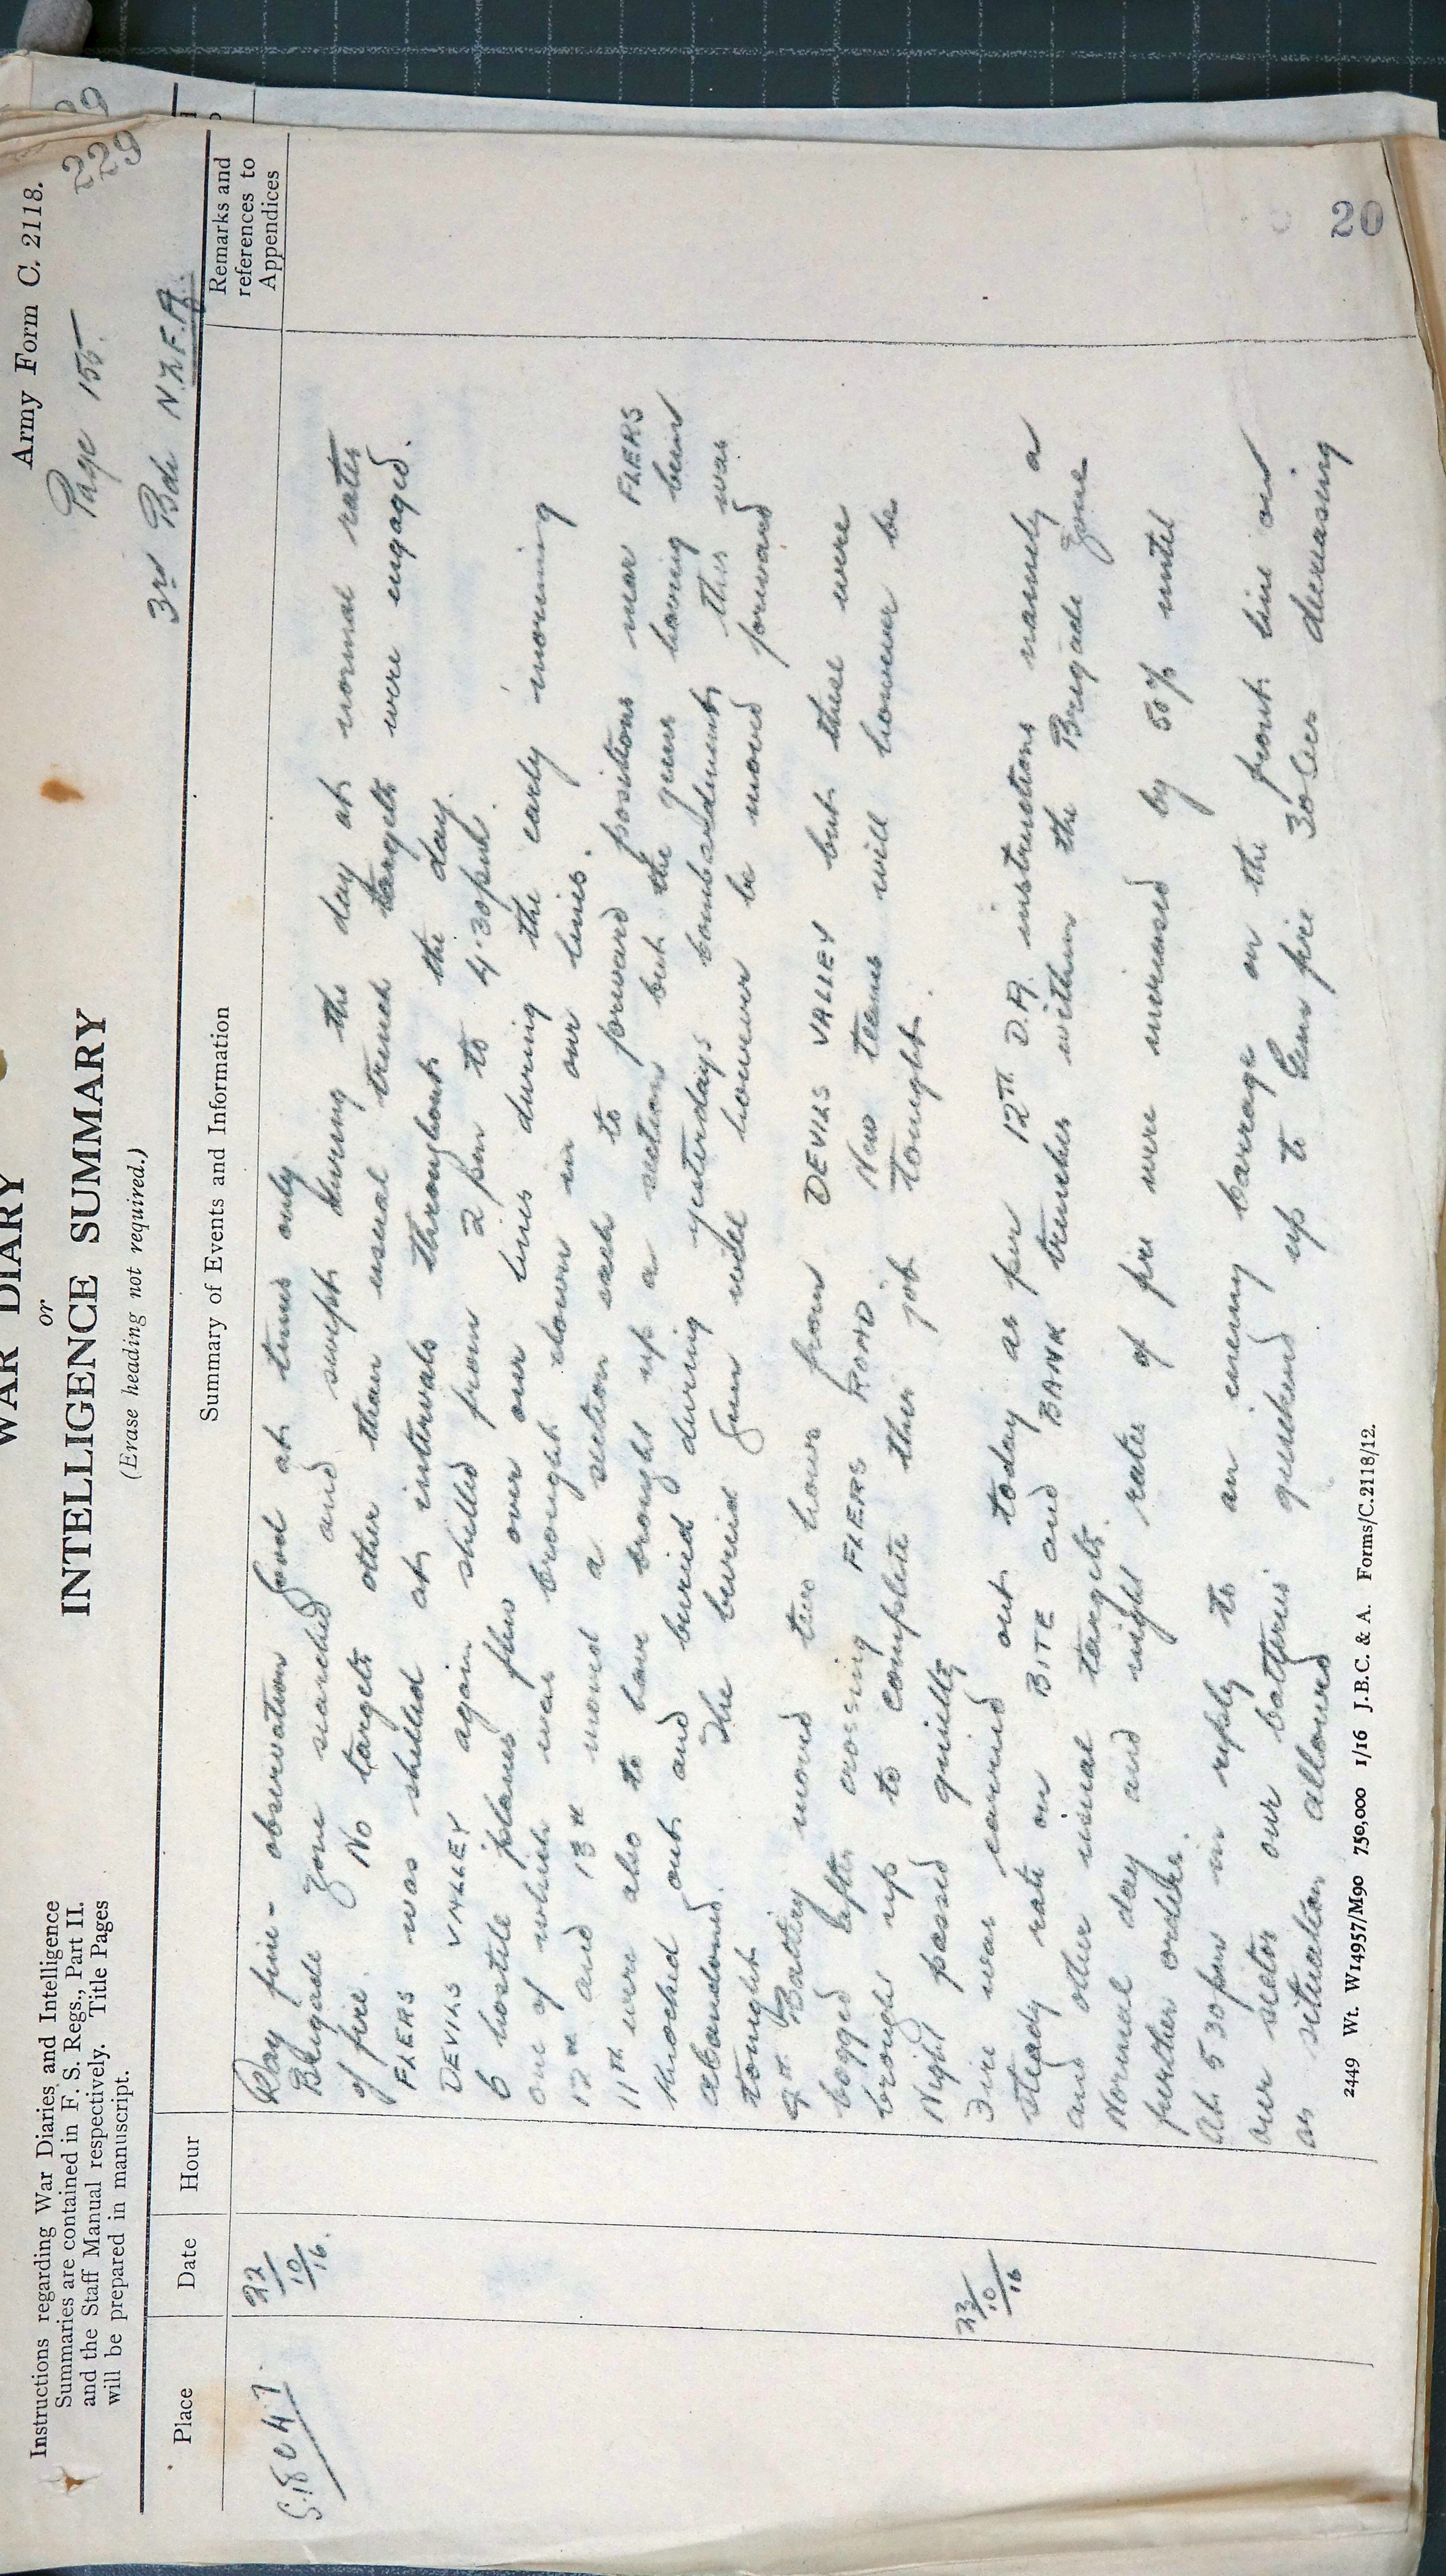 Army Form C. 2118.
WAR DIARY
or
INTELLIGENCE SUMMARY
(Erase heading not required.)
Instructions regarding War Diaries and Intelligence
Summaries are contained in F. S. Regs., Part II.
and the Staff Manual respectively. Title Pages
will be prepared in manuscript.
Page 155.
229
3rd Bde N.Z.F.A.
Place
Date
Hour
Summary of Events and Information
Remarks and
references to
Appendices
22/10/16.
Day fine - observation good at times only.
Brigade zone searched and swept during the day at normal rates
of fire. No targets other than usual trench targets were engaged.
FLERS was shelled at intervals throughout the day.
DEVILS VALLEY again shelled from 2 pm to 4.30pm.
6 hostile planes flew over our lines during the early morning
one of which was brought down in our lines.
12th and 13th moved a section each to forward positions near FLERS
11th were also to have brought up a section but the guns having been
knocked out and buried during yesterdays bombardment this was
abandoned. The buried gun will however be moved forward
tonight
9th Battery moved two hows from DEVILS VALLEY but these were
bogged after crossing FLERS ROAD. New teams will however be
brought up to complete this job tonight.
Night passed quietly
23/10/16
Fire was carried out today as per 12TH D.A. instructions namely a
steady rate on BITE and BANK trenches within the Brigade zone
and other usual targets.
Normal day and night rates of fire were increased by 50% until
further orders.
At 5 30pm in reply to an enemy barrage on the front line on
our sector our batteries quickened up to Gun fire 30 secs decreasing
as situation allowed
20
2449 Wt. W14957/M90 750,000 1/16 J.B.C. & A. Forms/C.2118/12.